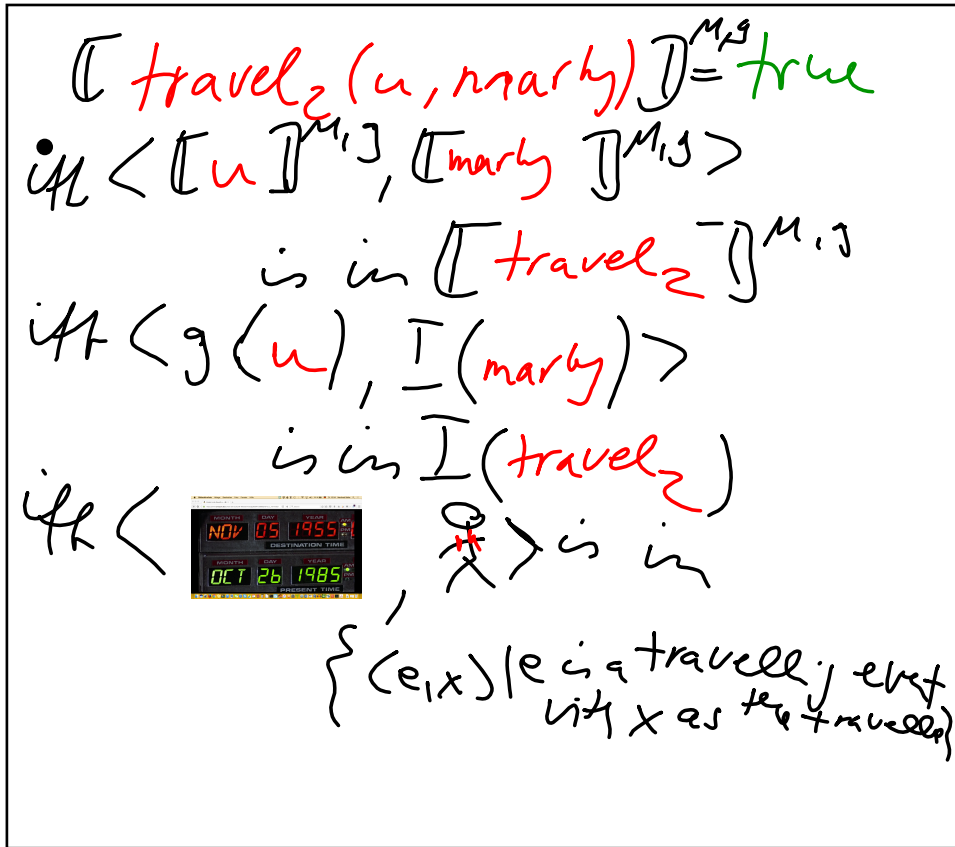 ⟦travel₂(u, marty)⟧ᴹ,ᵍ = true
iff <⟦u⟧ᴹ,ᵍ, ⟦marty⟧ᴹ,ᵍ>
is in ⟦travel₂⟧ᴹ,ᵍ
iff <g(u), I(marty)>
is in I(travel₂)
iff < , > is in
MONTH DAY YEAR
NOV 05 1955 AM
DESTINATION TIME
MONTH DAY YEAR
OCT 26 1985
PRESENT TIME
{<e,x>|e is a travelling event
with x as the traveller}